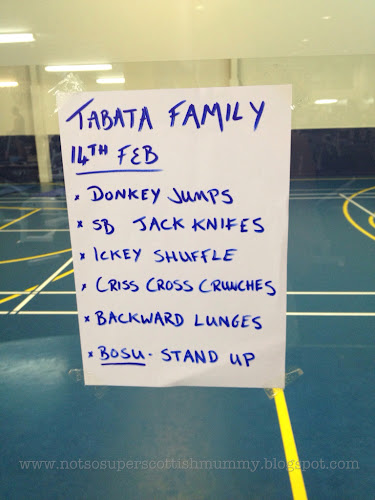 TABATA FAMILY
14TH FEB
* DONKEY JUMPS
* SB JACK KNIFES
* ICKEY SHUFFLE
* CRISS CROSS CRUNCHES
* BACKWARD LUNGES
* BOSU - STAND UP
www.notsosuperscottishmummy.blogspot.com